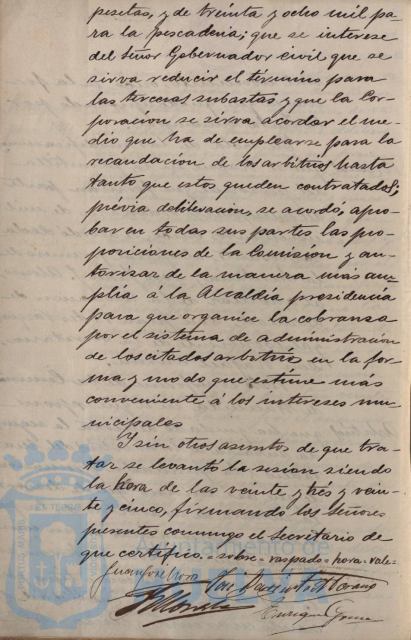 pesetas, y de treinta y ocho mil pa
ra la pescaderia; que se interese
del Señor Gobernador civil que se
sirva reducir el término para
las terceras subastas y que la Cor
poracion se sirva acordar el me
dio que ha de emplearse para la
recaudacion de los arbitrios hasta
tanto que estos queden contratados;
prévia deliberacion, se acordó, apro
bar en todas sus partes las pro
posiciones de la Comision y au
torizar de la manera mas am
plia á la Alcaldía presidencia
para que organice la cobranza
por el sistema de administracion
de los citados arbitrios en la for
ma y modo que estime más
conveniente á los intereses mu
nicipales
Y sin otros asuntos de que tra
tar se levantó la sesion siendo
la hora de las veinte y tres y vein
te y cinco, firmando los señores
presentes conmigo el Secretario de
que certifico.- sobre- raspado- hora- vale-
Juan José Mora José
Enrique